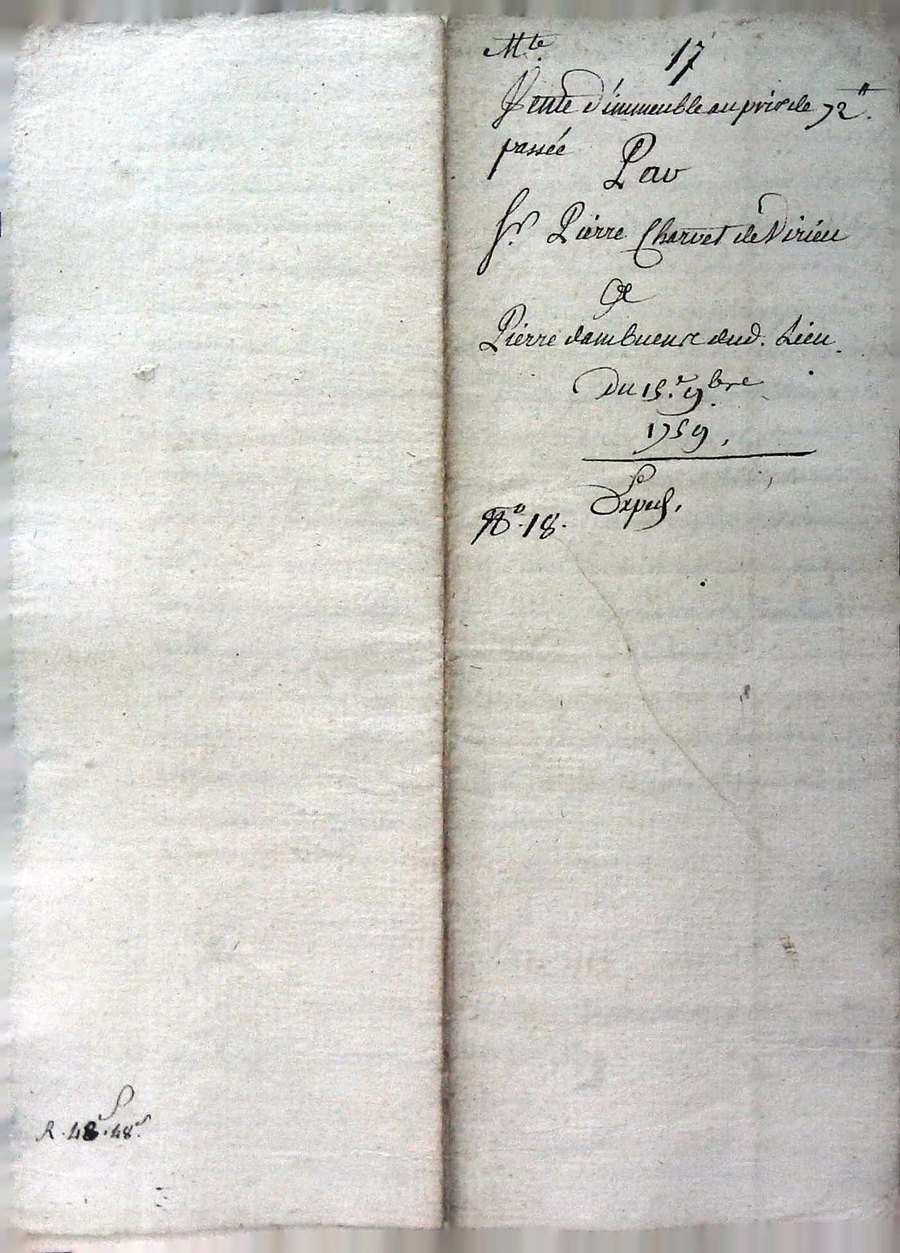 Mte. 17
Vente d'immeuble au prix de 72 ₶.
passée
Par
Sr. Pierre Charvet de Virieu
A
Pierre dambuent dud. Lieu.
Du 15.e 9.bre
1759.
Exped.
No. 18.
R. 48s. 48s.